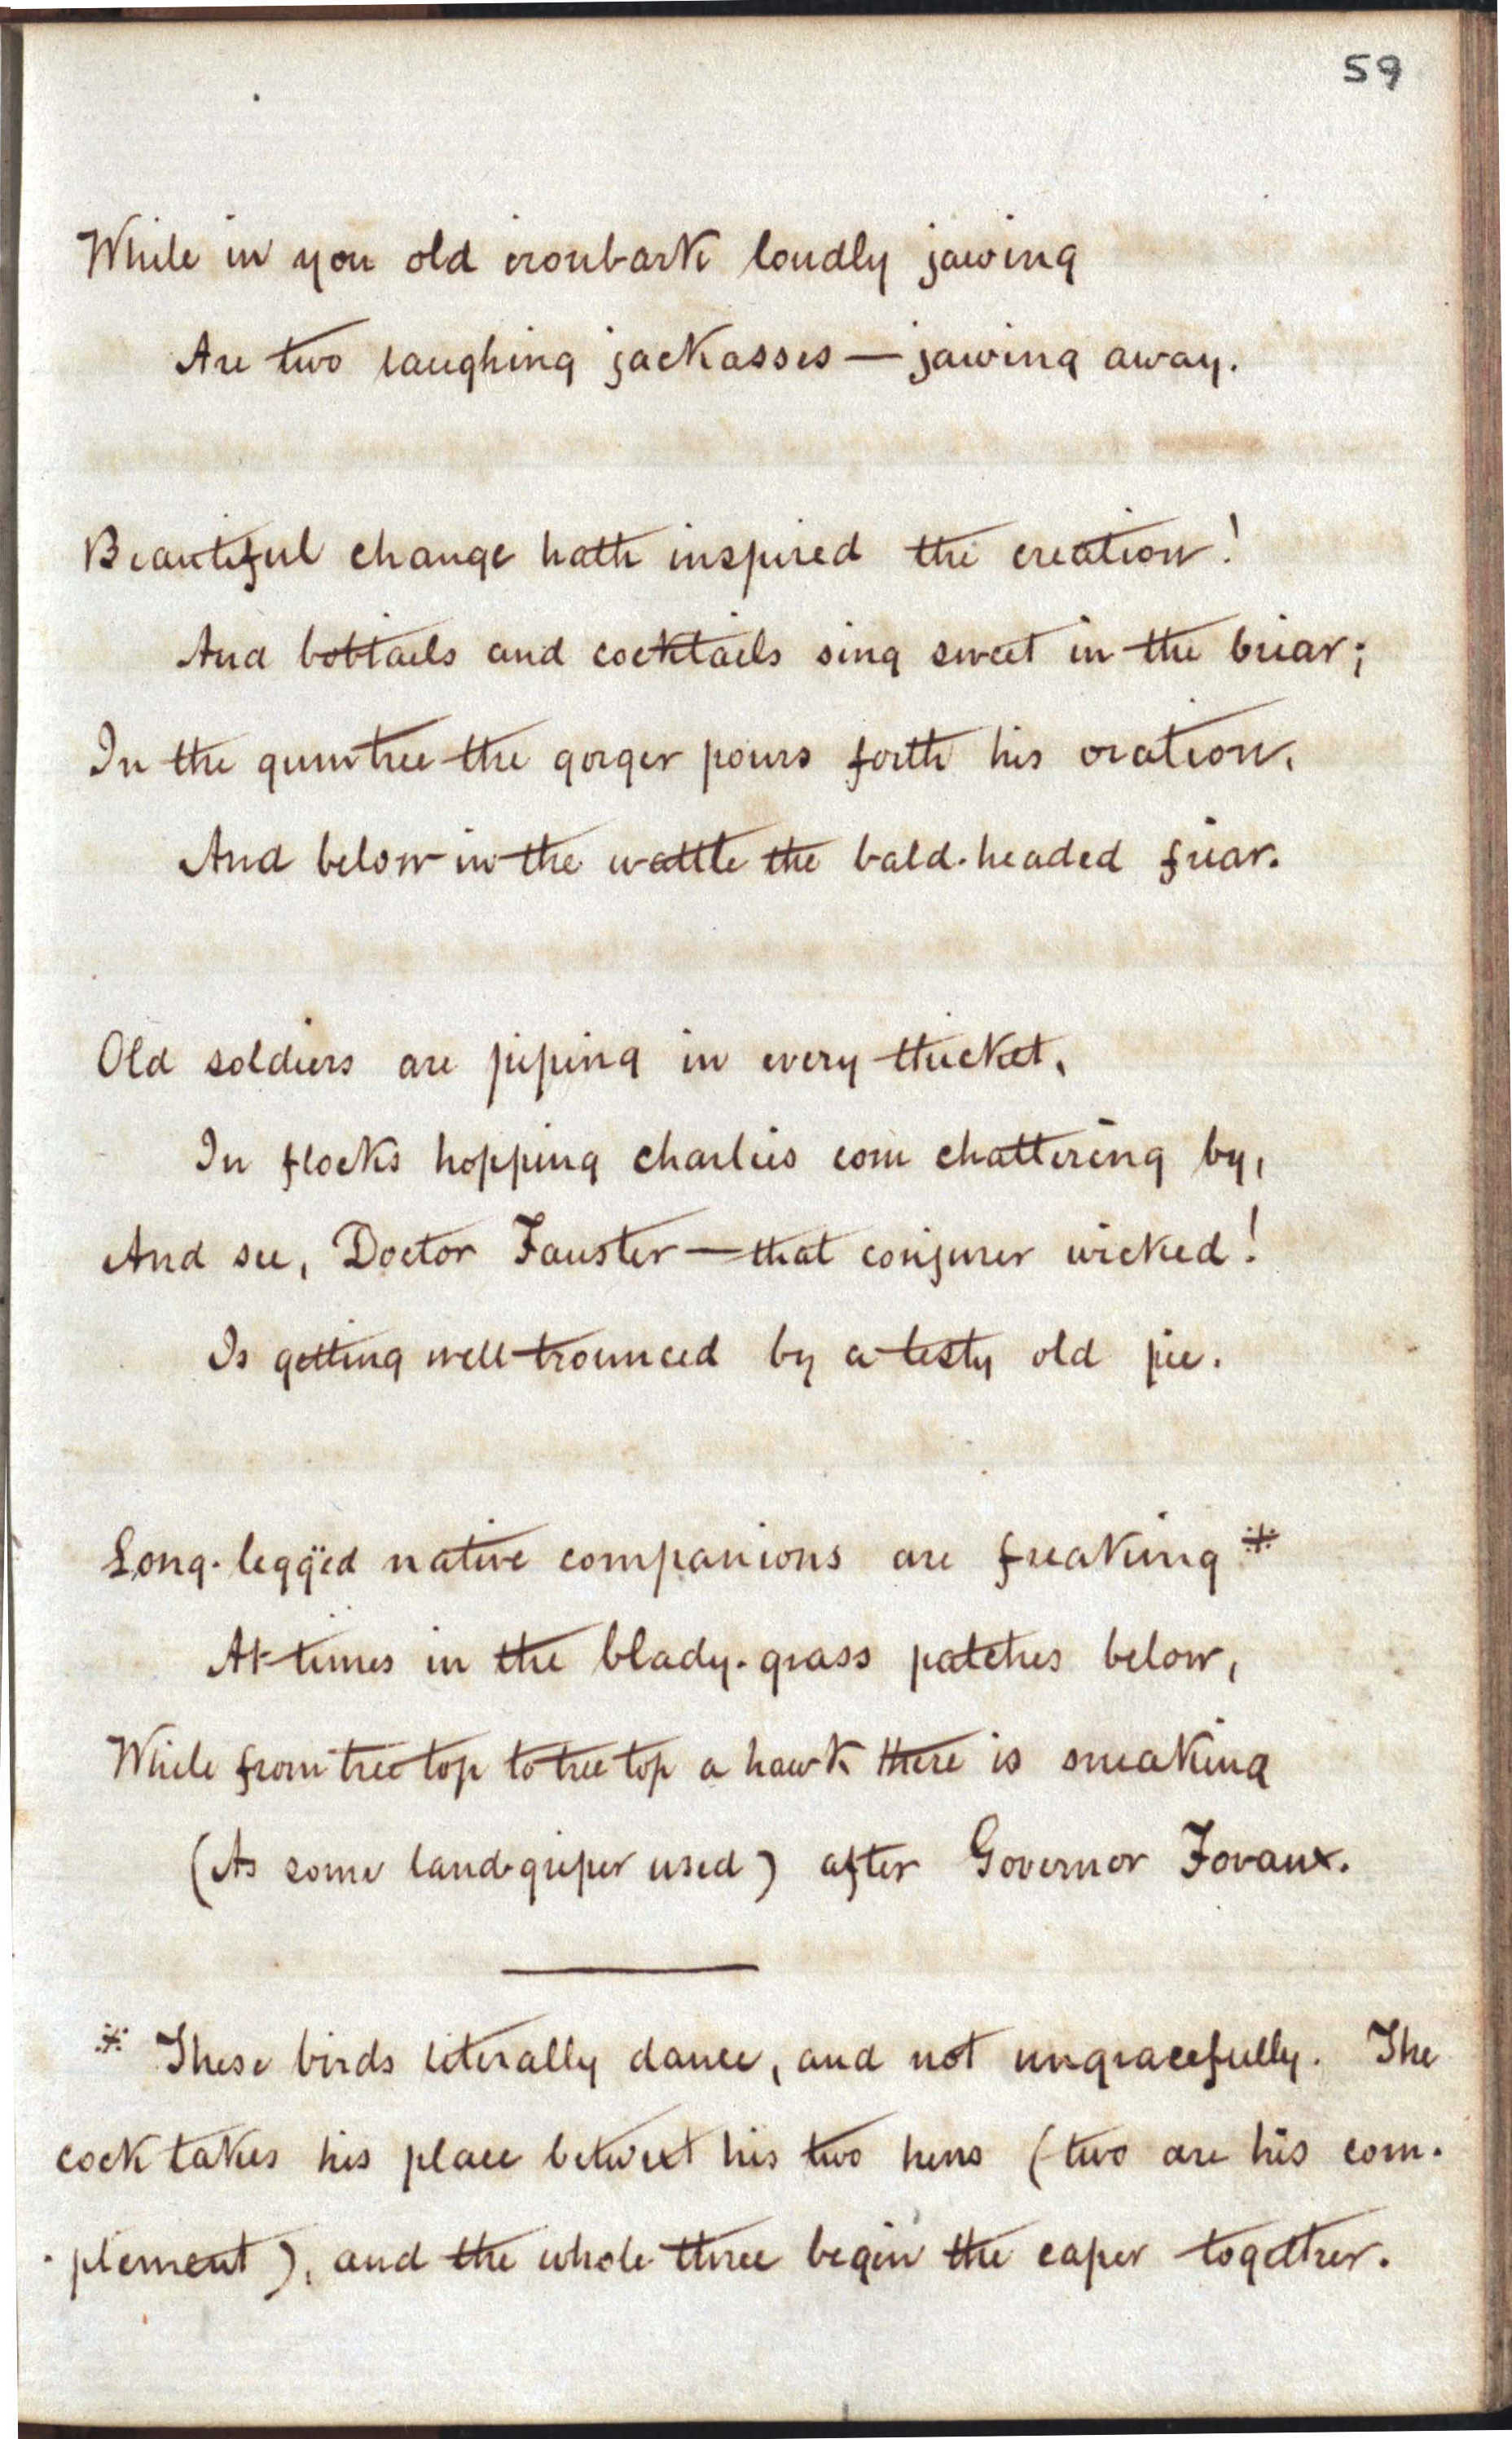 59
While in yon old ironbark loudly jawing
Are two laughing jackasses — jawing away.
Beautiful change hath inspired the creation!
And bobtails and cocktails sing sweet in the briar;
In the gumtree the gorger pours forth his oration,
And below in the wattle the bald-headed friar.
Old soldiers are piping in every thicket,
In flocks hopping charlies com chattering by,
And see, Doctor Fauster — that conjurer wicked!
Is getting well trounced by a testy old pie.
Long-leggëd native companions are freaking *
At times in the blady-grass patches below,
While from tree top to tree top a hawk there is sneaking
(As some land-griper used) after Governor Fovaux.
* These birds literally dance, and not ungracefully. The
cock takes his place betwixt his two hens (two are his com-
-plement), and the whole three begin the caper together.